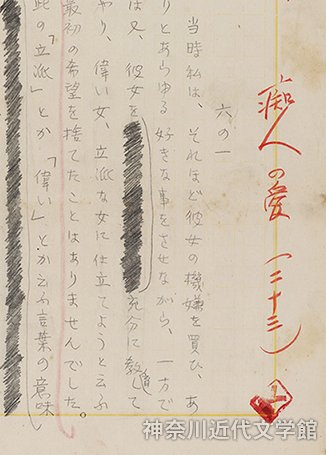 痴人の愛(二十三)
六の一
当時私は、それほど彼女の機嫌を買ひ、あ
りとあらゆる好きな事をさせながら、一方で
は又、彼女を充分に教して
やり、偉い女、立派な女に仕立てようと云ふ
最初の希望を捨てたことはありませんでした
此の「立派」とか「偉い」とか云ふ言葉の意味
神奈川近代文学館